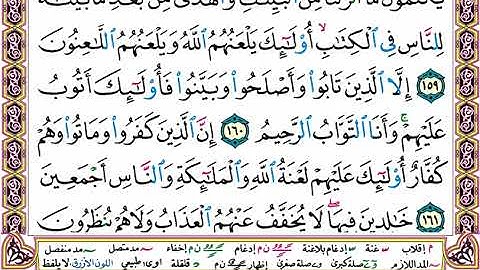 يَكْتُمُونَ مَآ أَنزَلْنَا مِنَ ٱلْبَيِّنَٰتِ وَٱلْهُدَىٰ مِنۢ بَعْدِ مَا بَيَّنَّٰهُ
لِلنَّاسِ فِى ٱلْكِتَٰبِ أُو۟لَٰٓئِكَ يَلْعَنُهُمُ ٱللَّهُ وَيَلْعَنُهُمُ ٱللَّٰعِنُونَ
١٥٩ إِلَّا ٱلَّذِينَ تَابُوا۟ وَأَصْلَحُوا۟ وَبَيَّنُوا۟ فَأُو۟لَٰٓئِكَ أَتُوبُ
عَلَيْهِمْ ۚ وَأَنَا ٱلتَّوَّابُ ٱلرَّحِيمُ ١٦٠ إِنَّ ٱلَّذِينَ كَفَرُوا۟ وَمَاتُوا۟ وَهُمْ
كُفَّارٌ أُو۟لَٰٓئِكَ عَلَيْهِمْ لَعْنَةُ ٱللَّهِ وَٱلْمَلَٰٓئِكَةِ وَٱلنَّاسِ أَجْمَعِينَ
١٦١ خَٰلِدِينَ فِيهَا ۖ لَا يُخَفَّفُ عَنْهُمُ ٱلْعَذَابُ وَلَا هُمْ يُنظَرُونَ
م إقلاب غنة إدغام بلاغنة ن م إدغام ن م إخفاء مد متصل مد منفصل
المد اللازم صلة كبرى وصلة صغرى إظهار ن م قلقلة اوى طبيعي اللون الأزرق لا يلفظ